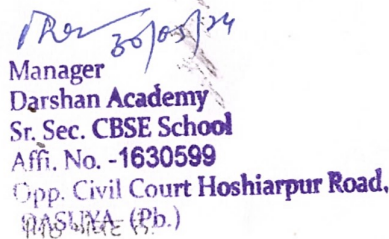 30/05/24
Manager
Darshan Academy
Sr. Sec. CBSE School
Affi. No. -1630599
Opp. Civil Court Hoshiarpur Road,
DASUYA (Pb.)